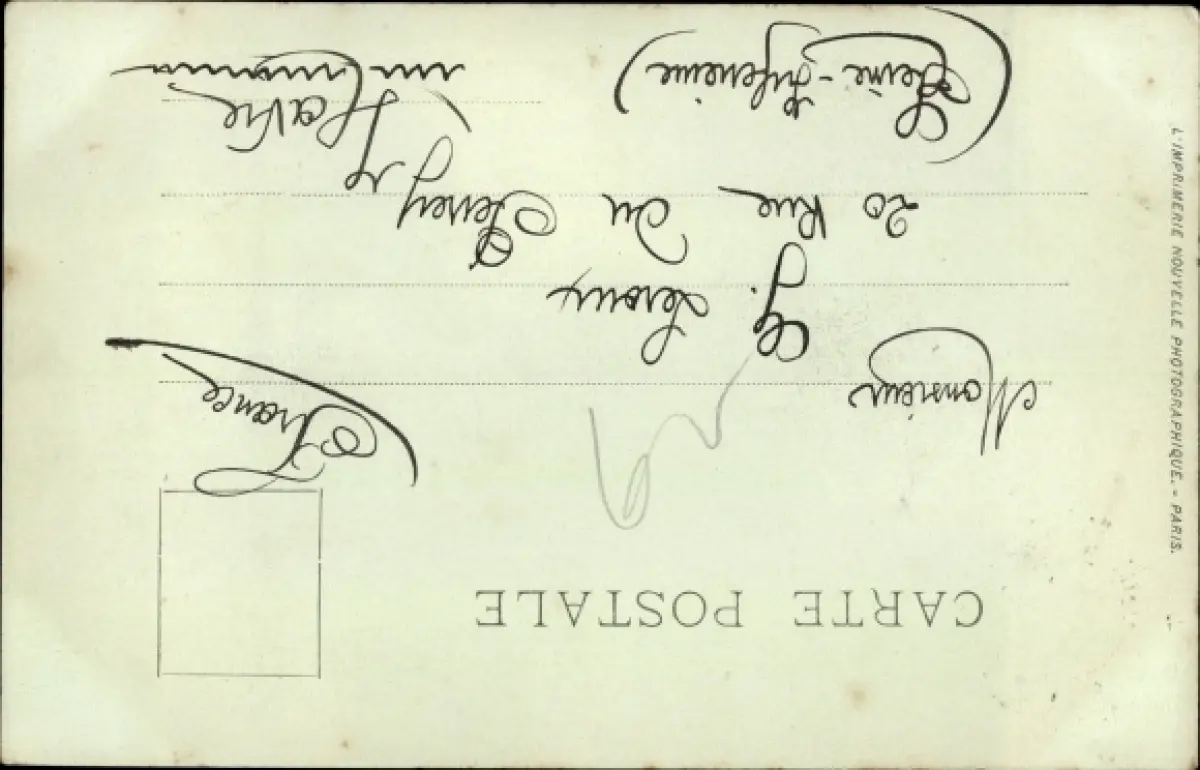 CARTE POSTALE
France
Monsieur
G. Leroux
20 Rue du Perrey
Havre
(Seine-Inférieure)
L'IMPRIMERIE NOUVELLE PHOTOGRAPHIQUE. - PARIS.